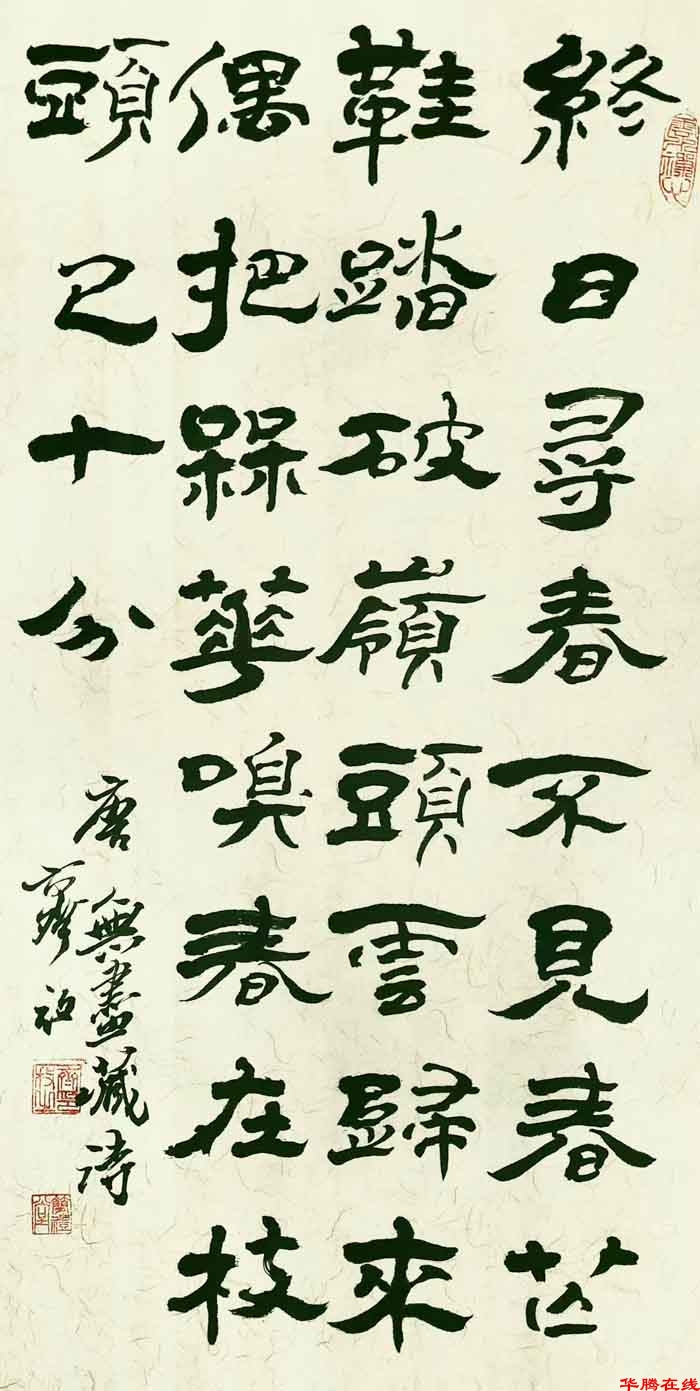 終日尋春不見春芒
鞋踏破嶺頭雲歸來
偶把槑華嗅春在枝
頭已十分
唐無盡藏詩
华腾在线